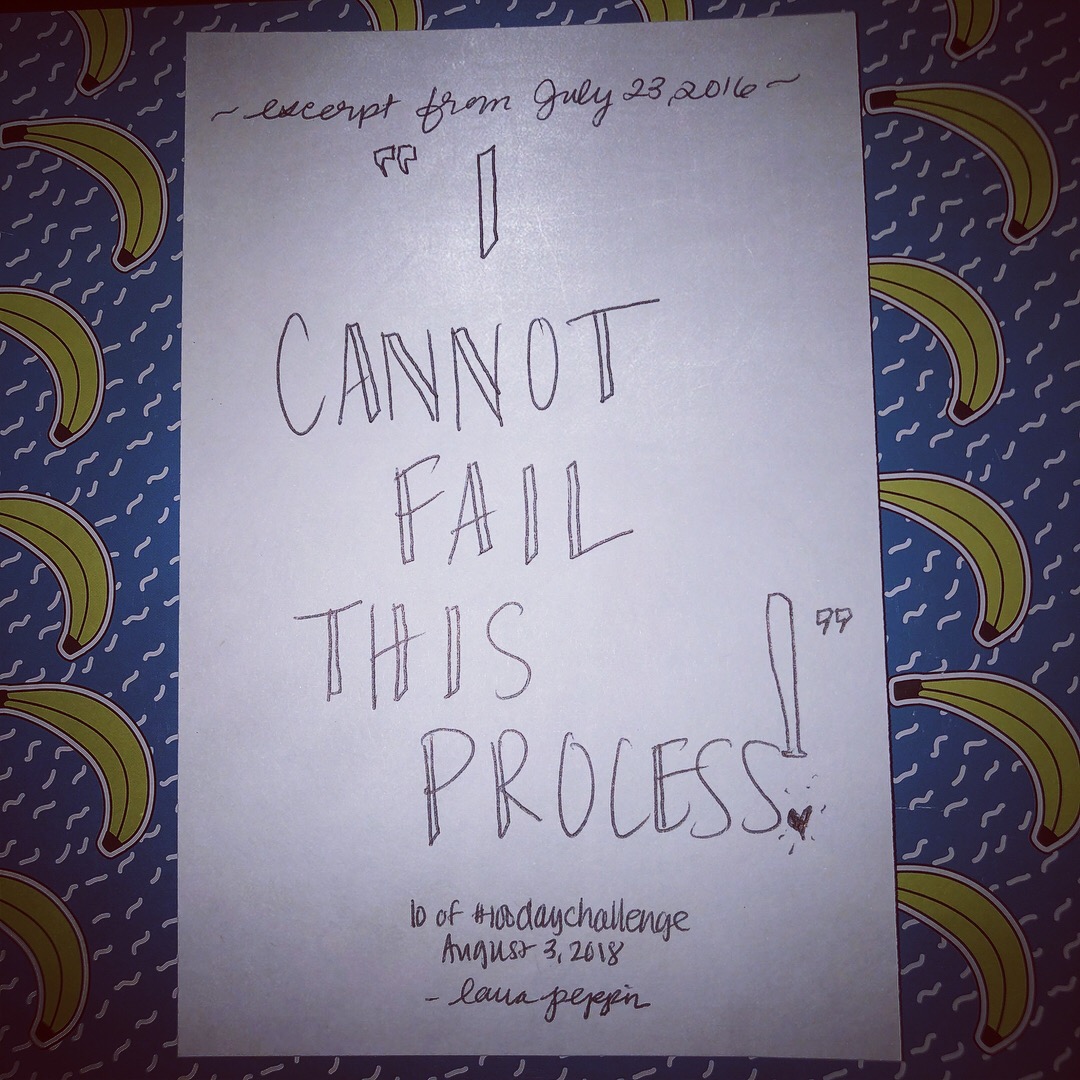 ~ excerpt from July 23, 2016 ~
" I
CANNOT
FAIL
THIS
PROCESS! "
10 of #100daychallenge
August 3, 2018
- lana peppin